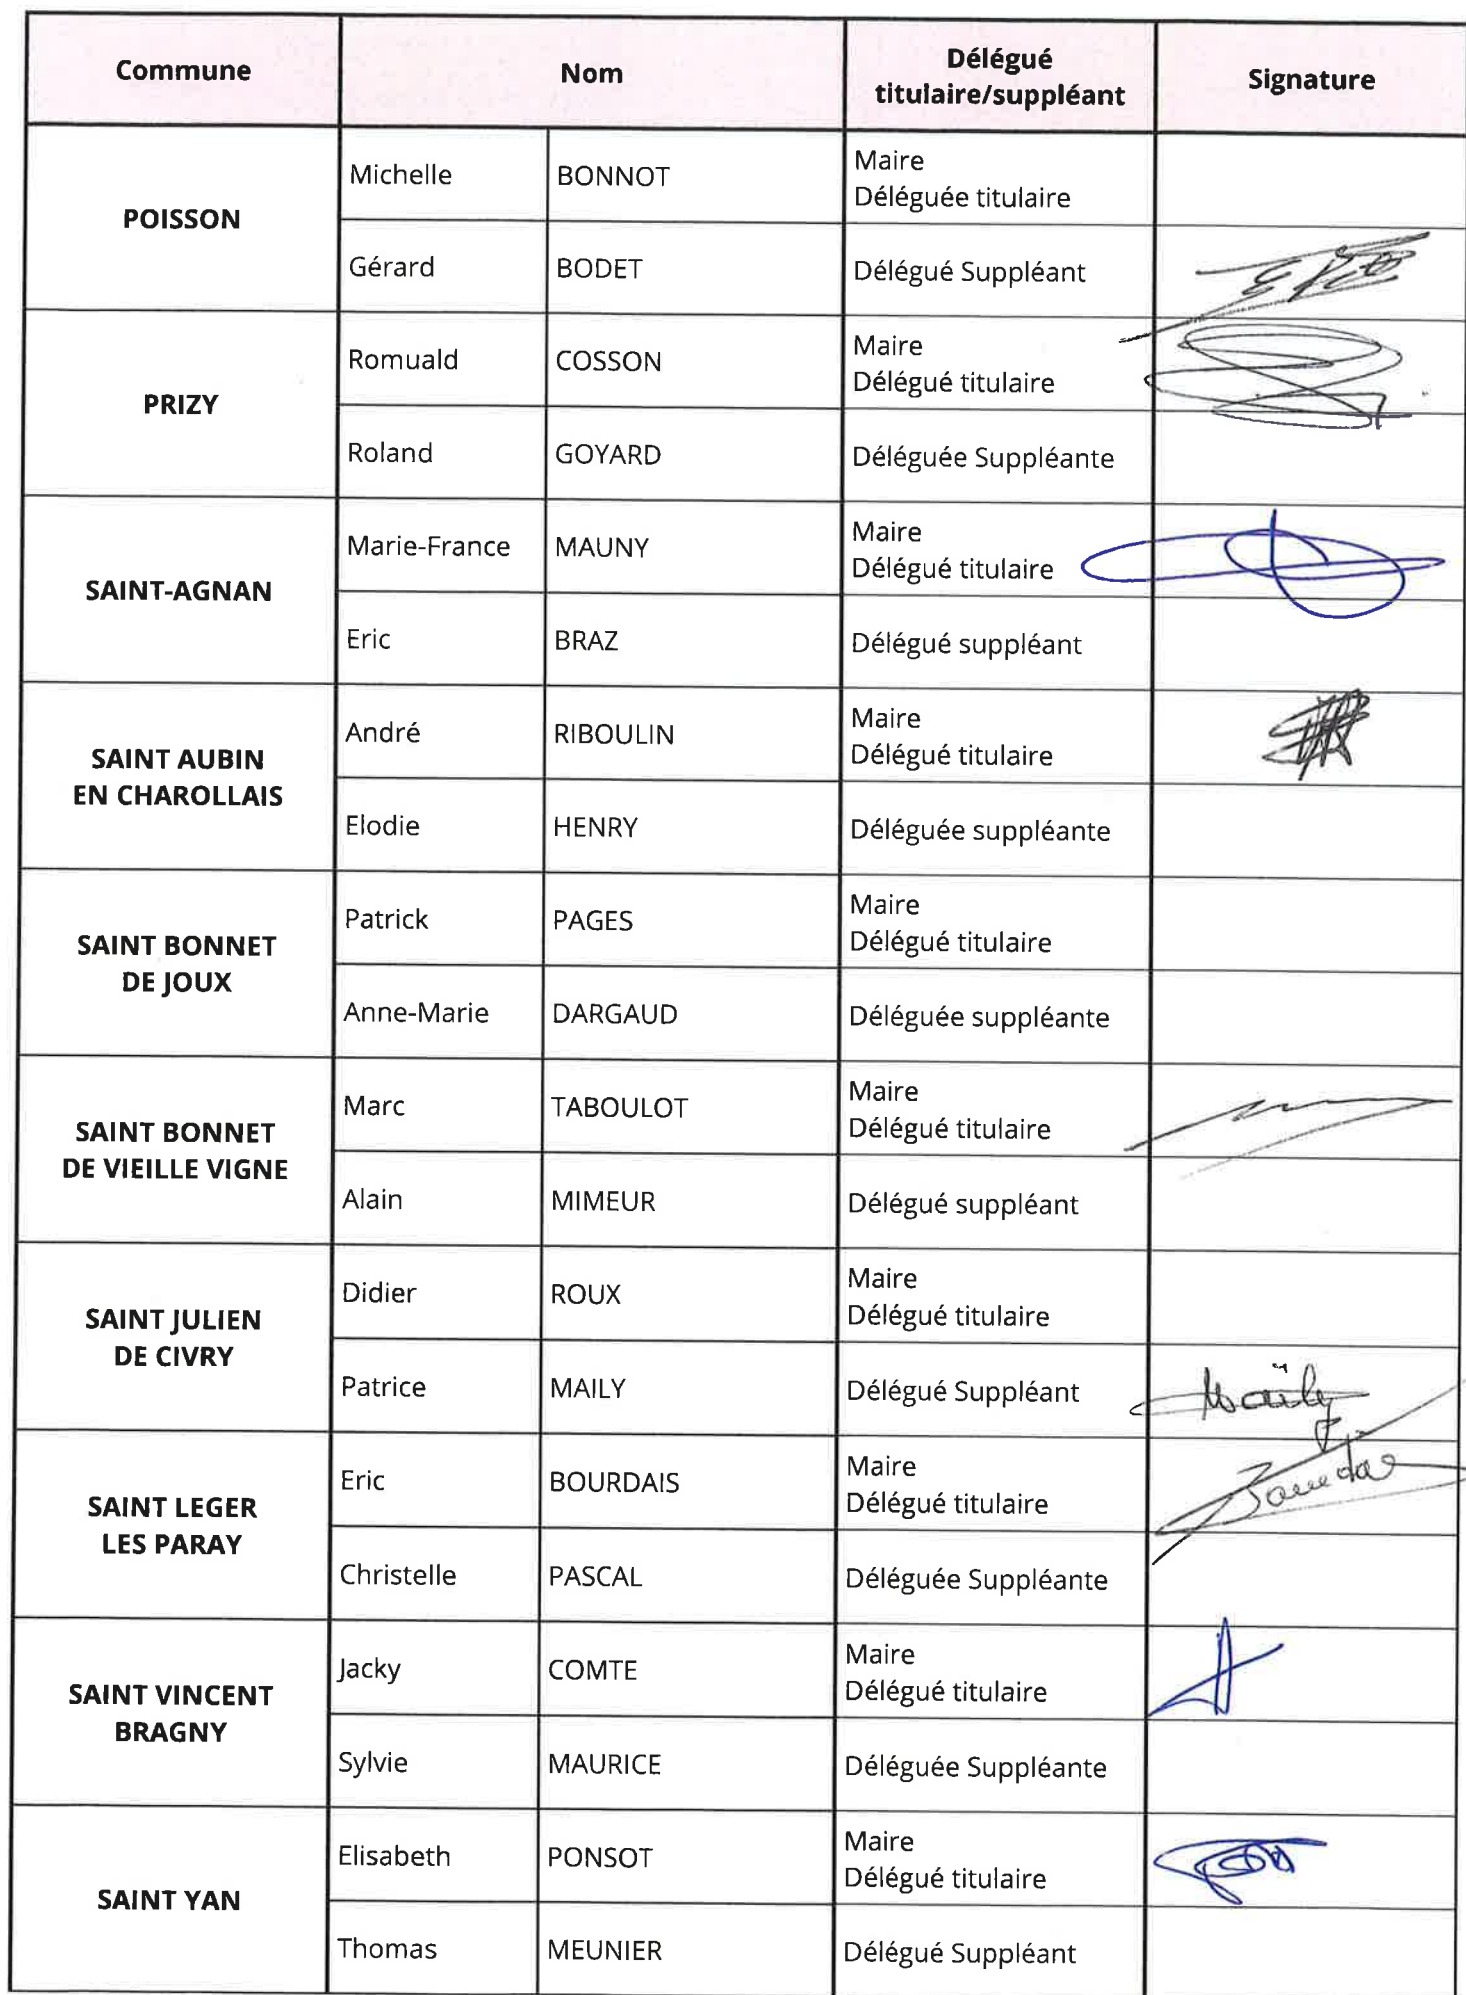 Commune
Nom
Délégué
titulaire/suppléant
Signature
POISSON
Michelle
BONNOT
Maire
Déléguée titulaire
Gérard
BODET
Délégué Suppléant
PRIZY
Romuald
COSSON
Maire
Délégué titulaire
Roland
GOYARD
Déléguée Suppléante
SAINT-AGNAN
Marie-France
MAUNY
Maire
Délégué titulaire
Eric
BRAZ
Délégué suppléant
SAINT AUBIN
EN CHAROLLAIS
André
RIBOULIN
Maire
Délégué titulaire
Elodie
HENRY
Déléguée suppléante
SAINT BONNET
DE JOUX
Patrick
PAGES
Maire
Délégué titulaire
Anne-Marie
DARGAUD
Déléguée suppléante
SAINT BONNET
DE VIEILLE VIGNE
Marc
TABOULOT
Maire
Délégué titulaire
Alain
MIMEUR
Délégué suppléant
SAINT JULIEN
DE CIVRY
Didier
ROUX
Maire
Délégué titulaire
Patrice
MAILY
Délégué Suppléant
Maïly
SAINT LEGER
LES PARAY
Eric
BOURDAIS
Maire
Délégué titulaire
Christelle
PASCAL
Déléguée Suppléante
SAINT VINCENT
BRAGNY
Jacky
COMTE
Maire
Délégué titulaire
Sylvie
MAURICE
Déléguée Suppléante
SAINT YAN
Elisabeth
PONSOT
Maire
Délégué titulaire
Thomas
MEUNIER
Délégué Suppléant